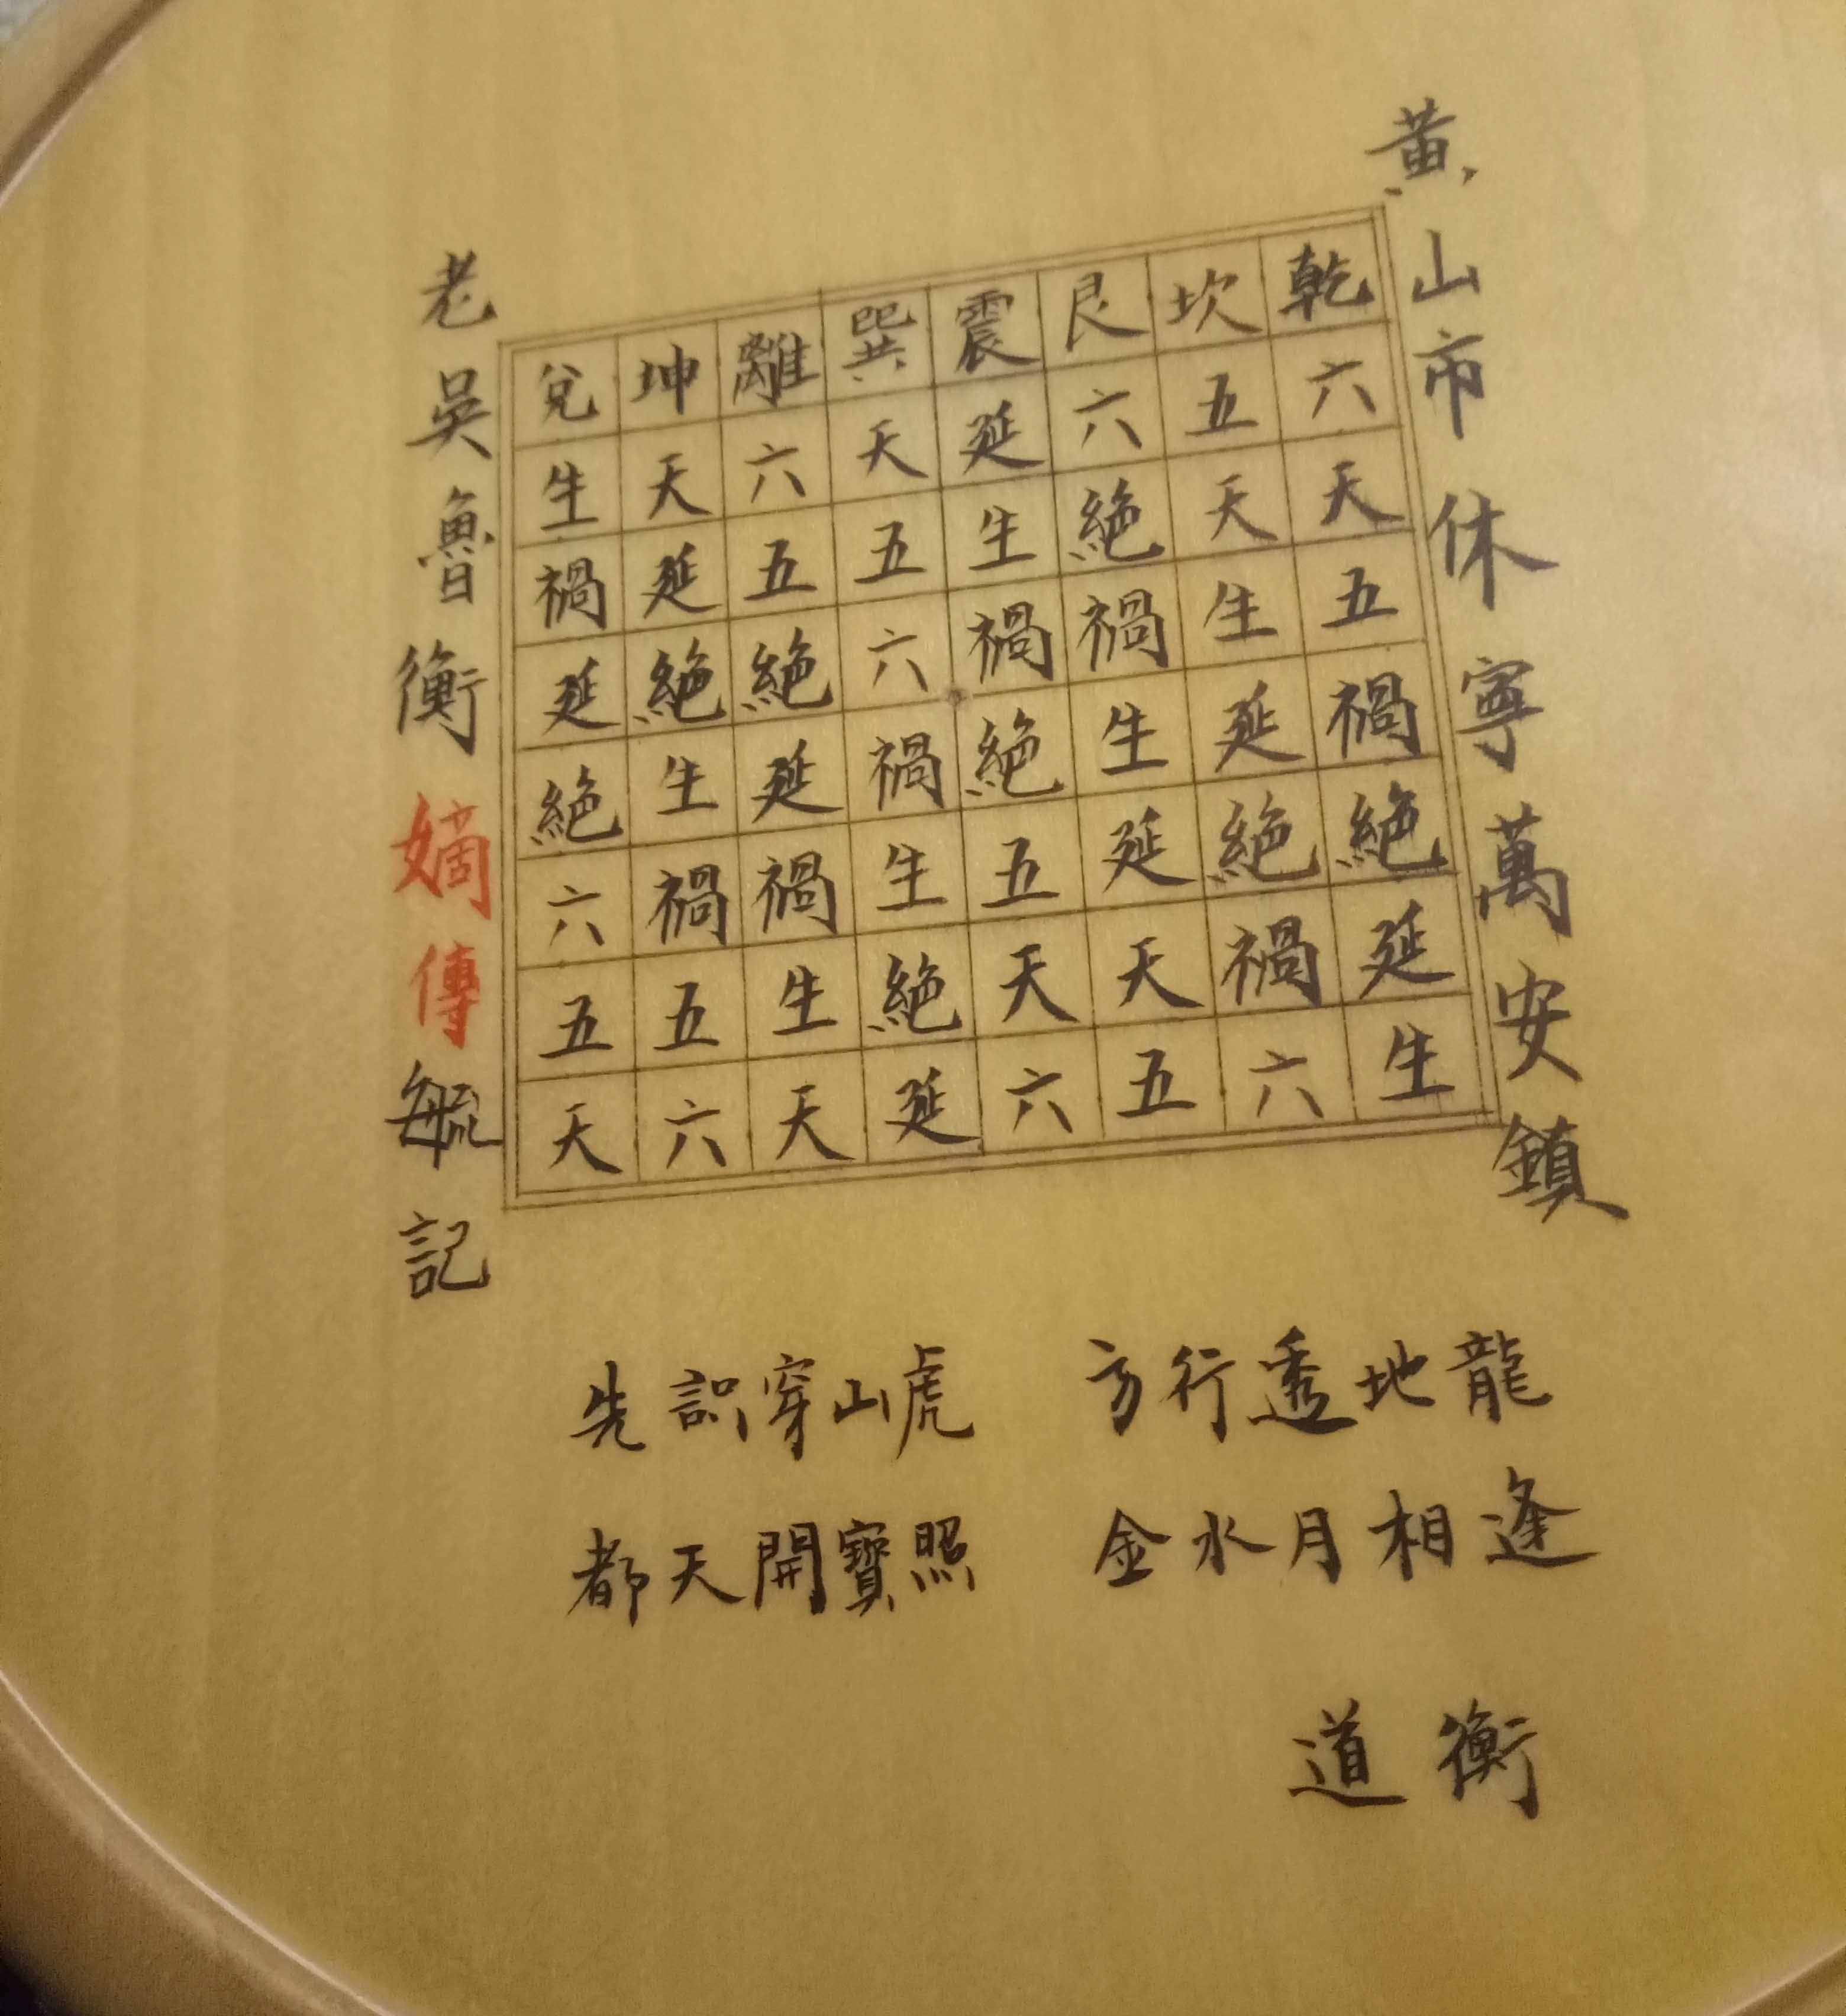 黃山市休寧萬安鎮
乾六天五禍絶延生
坎五天生延絶禍六
艮六絶禍生延天五
震延生禍絶五天六
巽天五六禍生絶延
離六五絶延禍生天
坤天延絶生禍五六
兌生禍延絶六五天
老吳魯衡嫡傳毓記
先識穿山虎 方行透地龍
都天開寶照 金水月相逢
道衡